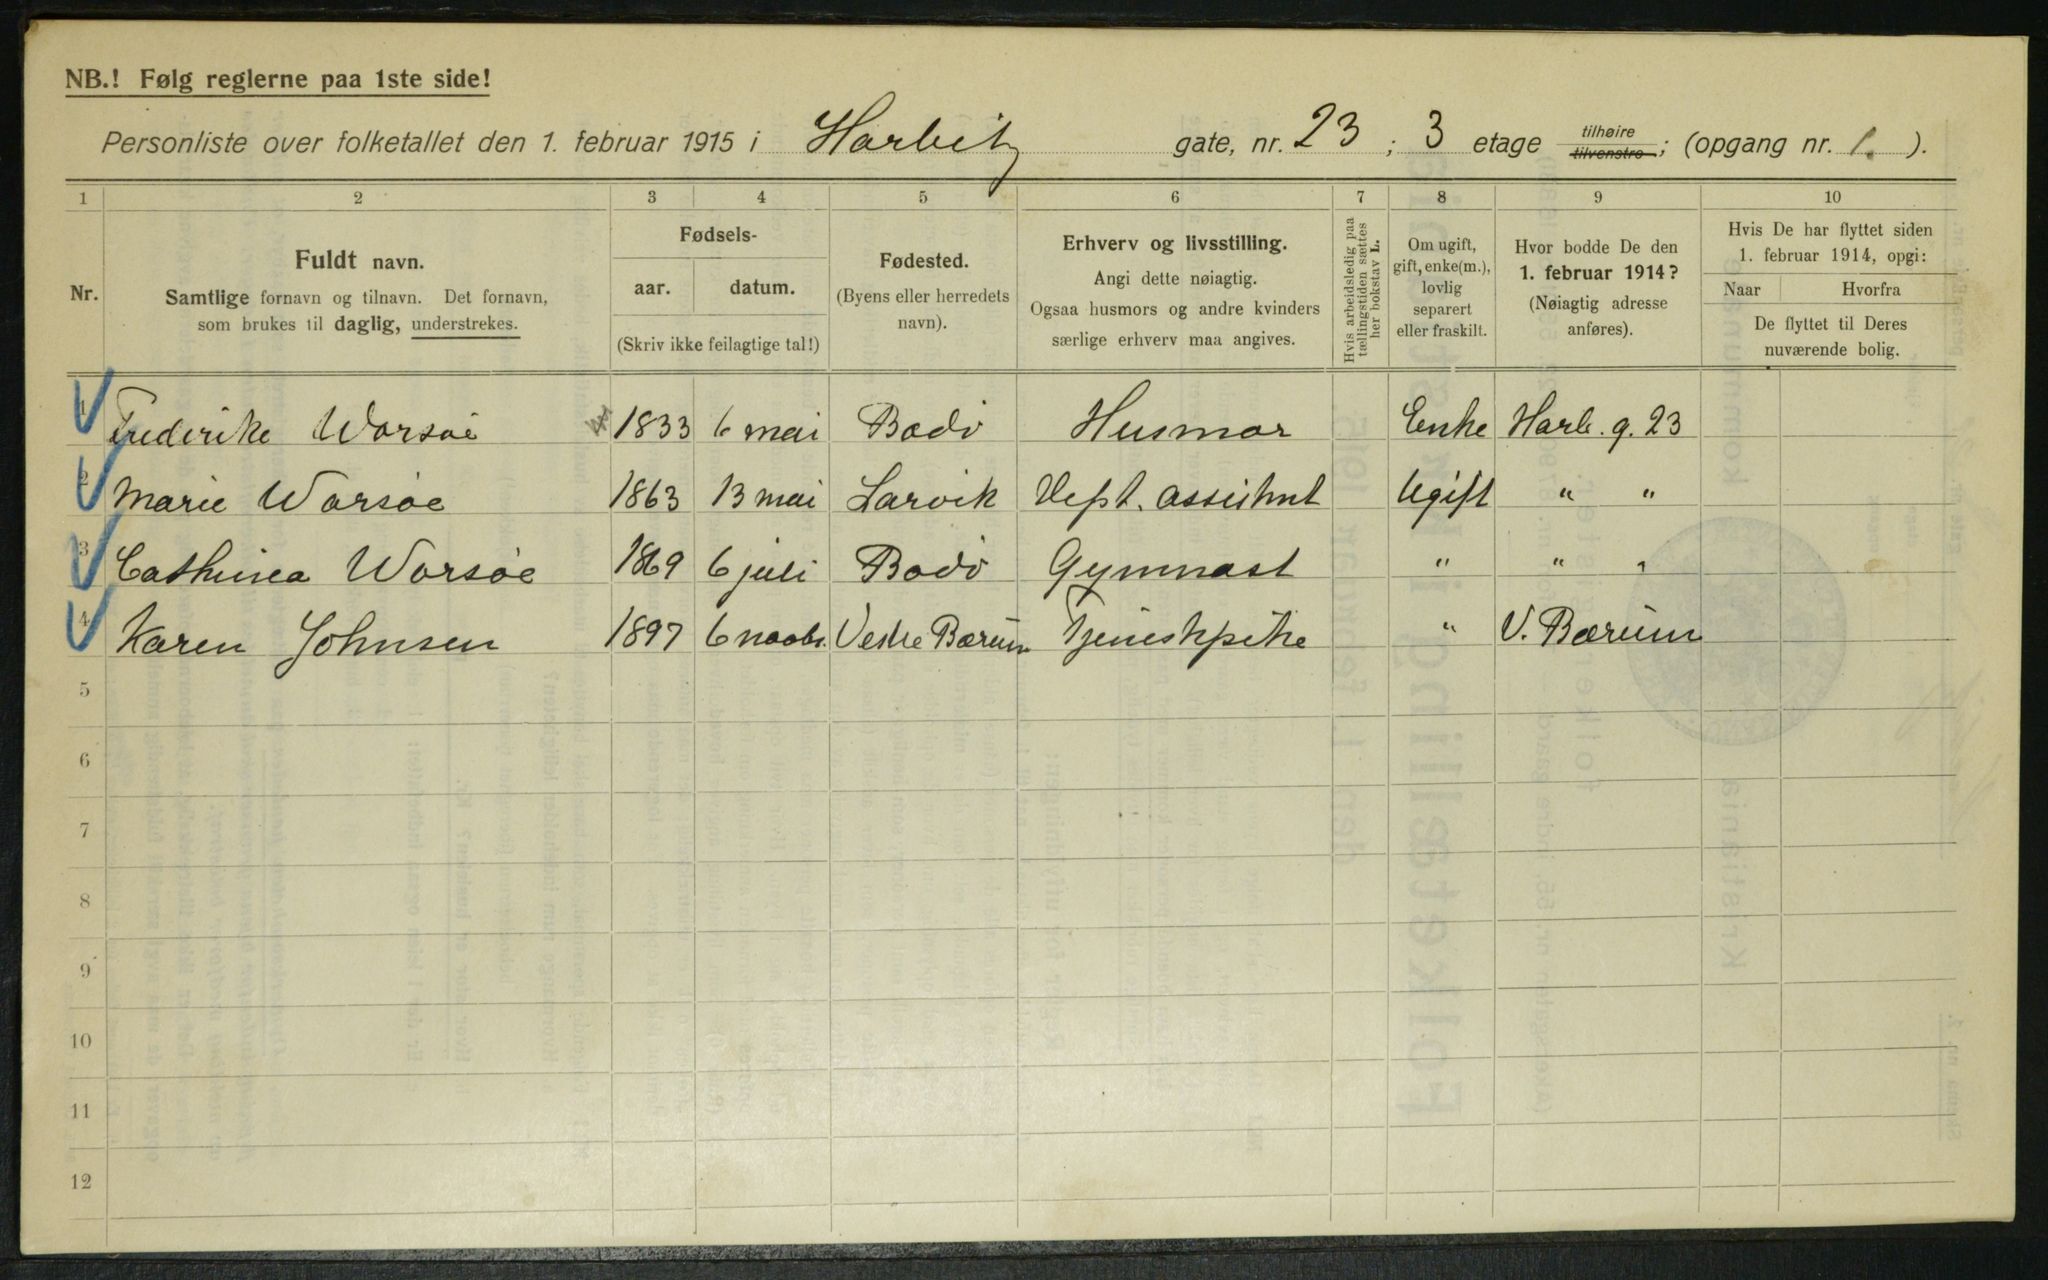 NB.! Følg reglerne paa 1ste side!
Personliste over folketallet den 1. februar 1915 i Harbitz gate, nr. 23 ; 3 etage tilhøire tilvenstre ; (opgang nr. 1. ).
1 2 3 4 5 6 7 8 9 10
Nr.
Fuldt navn.
Samtlige fornavn og tilnavn. Det fornavn,
som brukes til daglig, understrekes.
Fødsels-
aar. datum.
(Skriv ikke feilagtige tal!)
Fødested.
(Byens eller herredets
navn).
Erhverv og livsstilling.
Angi dette nøiagtig.
Ogsaa husmors og andre kvinders
særlige erhverv maa angives.
Hvis arbeidsledig paa
tællingstiden sættes
her bokstav L.
Om ugift,
gift, enke(m.),
lovlig
separert
eller fraskilt.
Hvor bodde De den
1. februar 1914?
(Nøiagtig adresse
anføres).
Hvis De har flyttet siden
1. februar 1914, opgi:
Naar Hvorfra
De flyttet til Deres
nuværende bolig.
1 Frederike Worsøe 1833 6 mai Bodø Husmor Enke Harb. g. 23
2 Marie Worsøe 1863 13 mai Larvik Dept. assistent Ugift " "
3 Cathinca Worsøe 1869 6 juli Bodø Gymnast " " "
4 Karen Johnsen 1897 6 novbr. Vestre Bærum Tjenestepike " V. Bærum
5
6
7
8
9
10
11
12